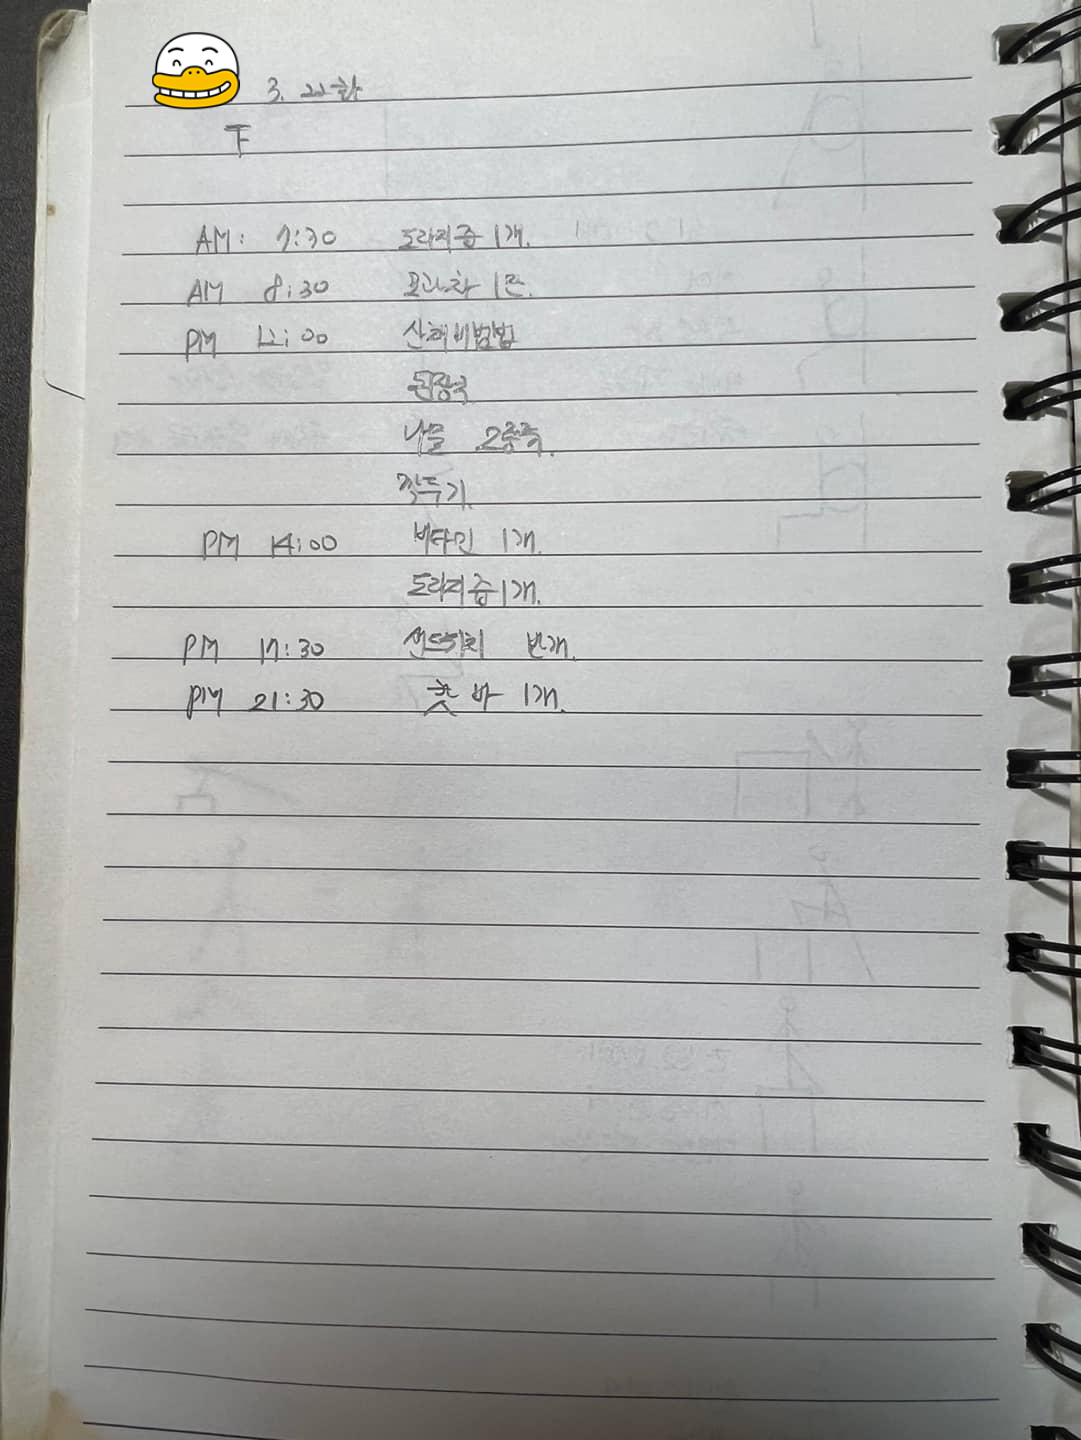 3. 22 화
F
AM: 7:30 도라지즙 1개.
AM 8:30 모과차 1잔.
PM 12:00 산채비빔밥
된장국
나물 2종류.
깍두기.
PM 14:00 비타민 1개.
도라지즙 1개.
PM 17:30 샌드위치 반개.
PM 21:30 핫바 1개.